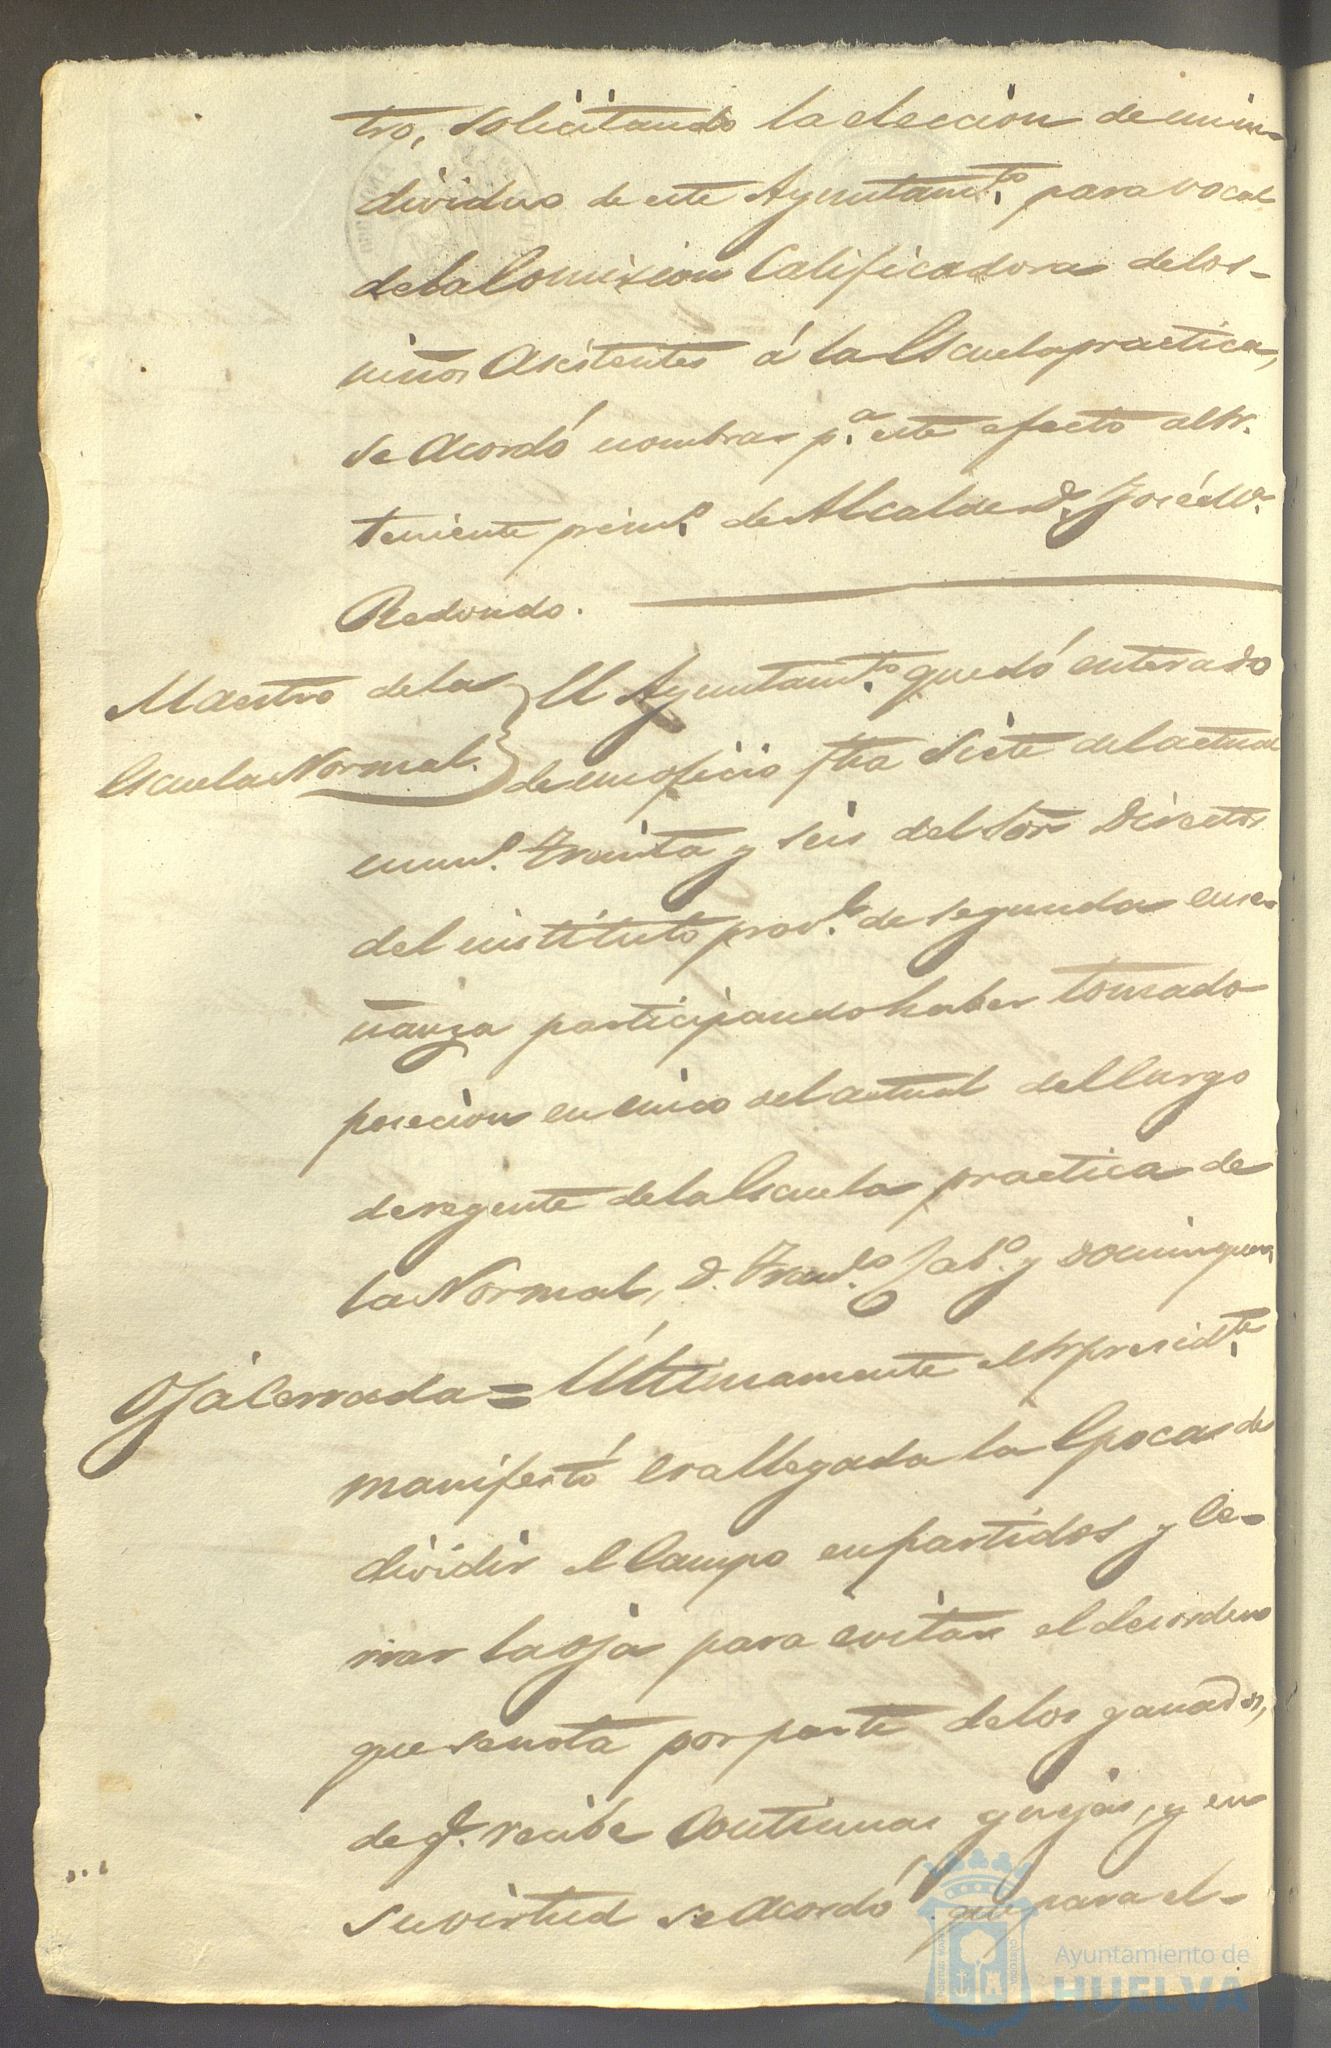 tro, solicitando la eleccion de un in-
dividuo de este Ayuntam.to para vocal
de la Comision Calificadora de los-
niños Asistentes á la Escuela practica,
se Acordó nombrar p.a este efecto al Sr.
teniente prim.o de Alcalde D. José M.a
Redondo.
Maestro de la
Escuela Normal.
El Ayuntam.to quedó enterado
de un oficio fha Siete del actual
num.o Treinta y seis del Sor Director
del instituto prov.l de segunda ense-
ñanza participando haber tomado
posecion en cinco del actual del Cargo
de regente de la Escuela practica de
la Normal, D. Fran.co y Dominguez
Oja Cerrada = Últimamente el Sr presid.te
manifestó era llegada la Epoca de
dividir el Campo en partidos y Ce-
rrar la oja para evitar el desorden
que se nota por parte de los ganados,
de q.e recibe Continuas quejas, y en
su virtud se Acordó que para el-
Ayuntamiento de
HUELVA